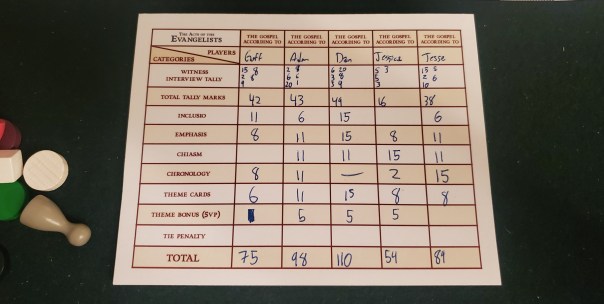 The Acts of the
Evangelists
THE GOSPEL ACCORDING TO THE GOSPEL ACCORDING TO THE GOSPEL ACCORDING TO THE GOSPEL ACCORDING TO THE GOSPEL ACCORDING TO
PLAYERS
CATEGORIES
Adam Dan Jessica Jesse
WITNESS
INTERVIEW TALLY
TOTAL TALLY MARKS 42 43 49 16 38
INCLUSIO 11 6 15 6
EMPHASIS 8 11 15 8 11
CHIASM 11 11 15 11
CHRONOLOGY 8 11 — 2 15
THEME CARDS 6 11 15 8 8
THEME BONUS (5VP) 5 5 5
TIE PENALTY
TOTAL 75 98 110 54 89